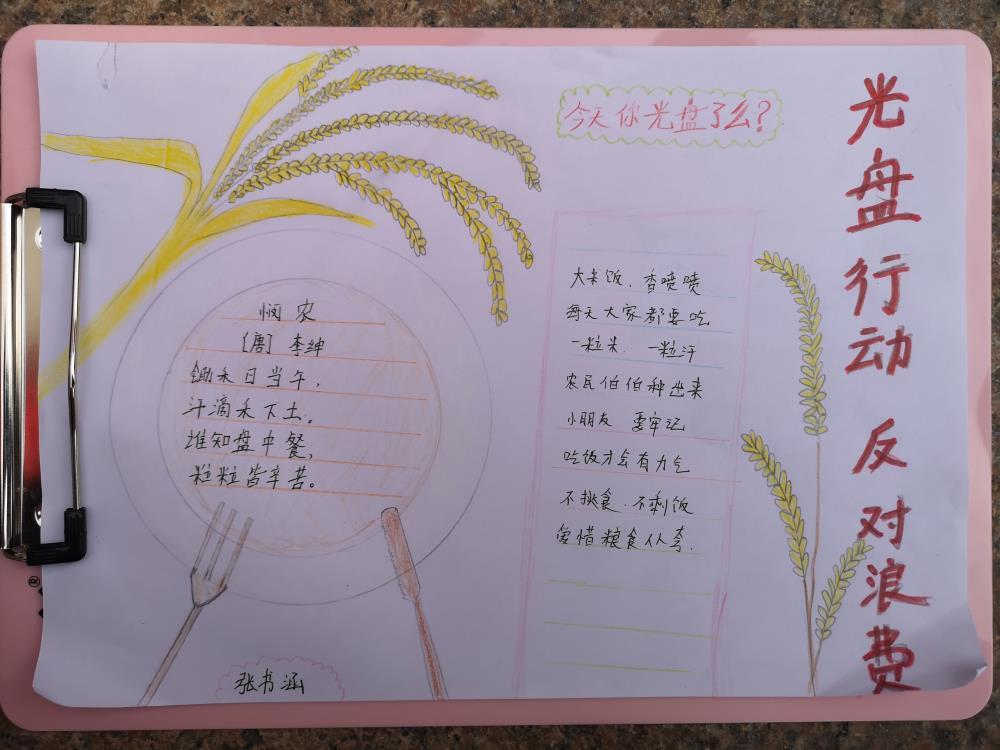 光盘行动 反对浪费
今天你光盘了么?
悯农
[唐] 李绅
锄禾日当午,
汗滴禾下土。
谁知盘中餐,
粒粒皆辛苦。
大米饭、香喷喷
每天大家都要吃
一粒米、一粒汗
农民伯伯种出来
小朋友 要牢记
吃饭才会有力气
不挑食、不剩饭
爱惜粮食人人夸.
张书涵